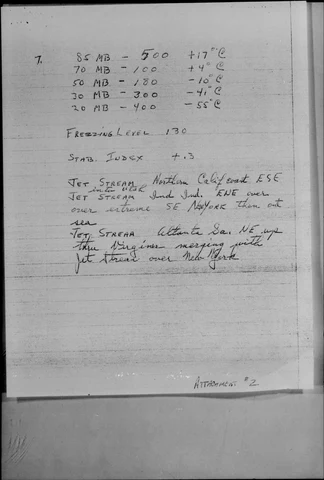 7. 85 MB - 500 +17°C
70 MB - 100 +4°C
50 MB - 180 -10°C
30 MB - 300 -41°C
20 MB - 400 -55°C
FREEZING LEVEL 130
STAB. INDEX +.3
JET STREAM Northern Calif coast ESE
into NEB
JET STREAM Ind Ind. ENE over
over extreme SE NewYORK then out
sea
JET STREAM Atlanta Ga. NE up
thru Virginia merging with
Jet Stream over New York
ATTACHMENT #2